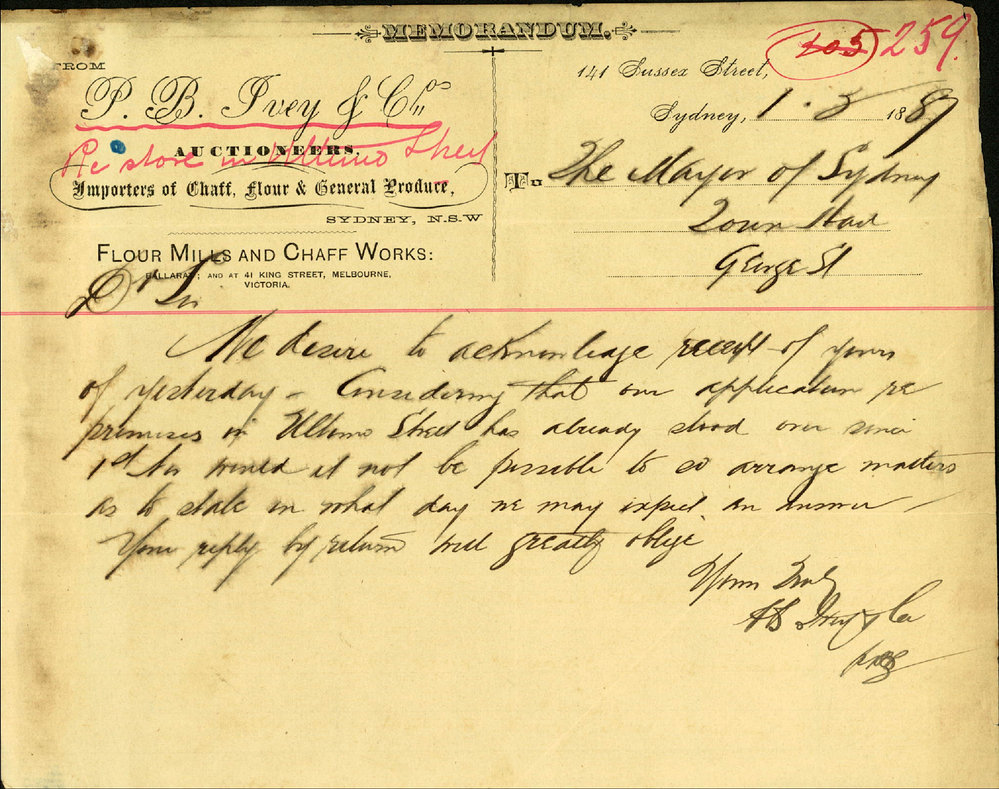 MEMORANDUM.
105 259.
FROM
P. B. Ivey & Co.
AUCTIONEERS,
Re store in Ultimo Street
Importers of Chaff, Flour & General Produce,
SYDNEY, N.S.W
FLOUR MILLS AND CHAFF WORKS:
BALLARAT; AND AT 41 KING STREET, MELBOURNE,
VICTORIA.
141 Sussex Street,
Sydney, 1. 2 1887
To The Mayor of Sydney
Town Hall
George St
Dr Sir
We desire to acknowledge receipt of yours
of yesterday - Considering that our application re
premises in Ultimo Street has already stood over since
1st would it not be possible to so arrange matters
as to state on what day we may expect an answer
Your reply by return will greatly oblige
Yours Truly
P B Ivey & Co